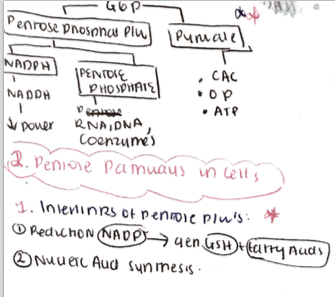 G6P
Pentose phosphat Plu
Pyruvate
NADPH
PENTOSE
PHOSPHATE
• CAC
• OP
• ATP
NADDH
↓ power
RNA, DNA,
Coenzymes
2. Pentose Pathways in cells
1. Interlinks of pentose Plu's:
① Reduction NADP → gen GSH + fatty Acids
② Nucleic Acid synthesis.